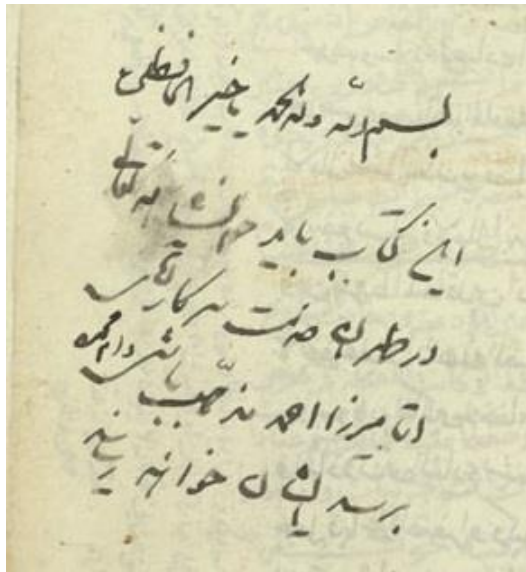 بسم الله وله الحمد یا خیر الحافظین
این کتاب باید انشاء الله تعالی
در طهران خدمت سرکار آقای
آقا میرزا احمد مذهب باشی دام مجده
برسد ایشان خواهند